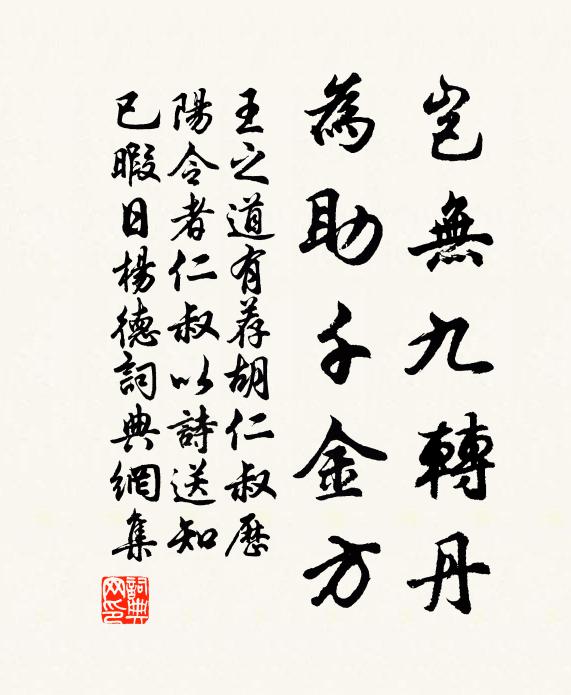 豈無九轉丹
為助千金方
王之道有荐胡仁叔歷
陽令者仁叔以詩送知
已暇日楊德詞典網集
詞典網印